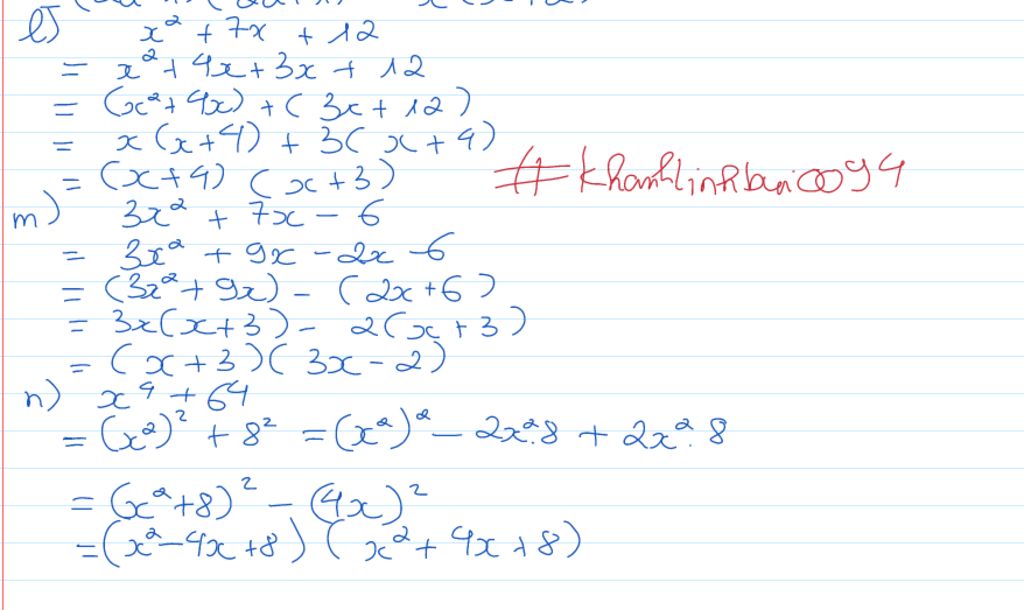 l) x² + 7x + 12
= x² + 4x + 3x + 12
= (x² + 4x) + (3x + 12)
= x(x + 4) + 3(x + 4)
= (x + 4)(x + 3)
#khanhlinhbui0094
m) 3x² + 7x - 6
= 3x² + 9x - 2x - 6
= (3x² + 9x) - (2x + 6)
= 3x(x + 3) - 2(x + 3)
= (x + 3)(3x - 2)
n) x⁴ + 64
= (x²)² + 8² = (x²)² - 2x².8 + 2x².8
= (x² + 8)² - (4x)²
= (x² - 4x + 8)(x² + 4x + 8)